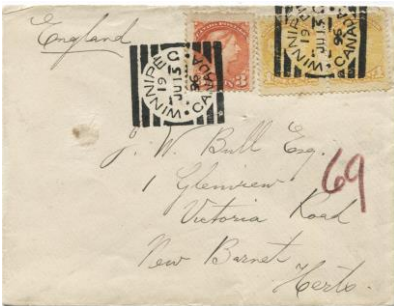 England
WINNIPEG
19
JU 13
96
CANADA
3
WINNIPEG
19
JU 13
96
CANADA
1
1
J. W. Bull Esq.
69
1 Glenview
Victoria Road
New Barnet
Herts.